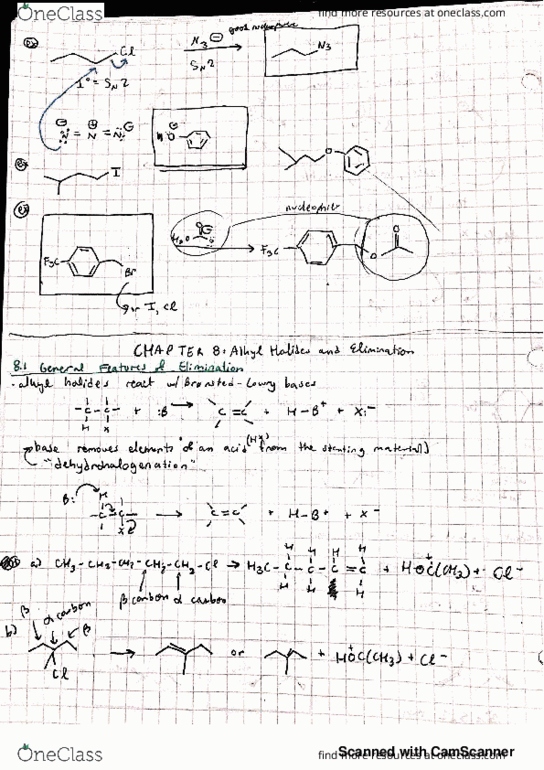 OneClass
find more resources at oneclass.com
ex
Cl
N3 ⊖ good nucleophile
SN2
N3
1° = SN2
⊖ ⊕ ⊖
:N = N = N:
O
ex
I
O
ex
nucleophile
F3C
Br
F3C
O
O
or I, Cl
CHAPTER 8: Alkyl Halides and Elimination
8.1 General Features of Elimination
- alkyl halides react w/ Bronsted-Lowry bases
-C-C- + :B → C=C + H-B+ + X:-
H X
base removes elements of an acid (HX) from the starting material
"dehydrohalogenation"
B: H
-C-C- → C=C + H-B+ + X-
X
a) CH3-CH2-CH2-CH2-CH2-Cl → H3C-C-C-C=C + HOC(CH3) + Cl-
H H H H
H H H
β carbon α carbon
β α carbon β
b) → or + HOC(CH3) + Cl-
Cl
OneClass
find more resources at oneclass.com
Scanned with CamScanner